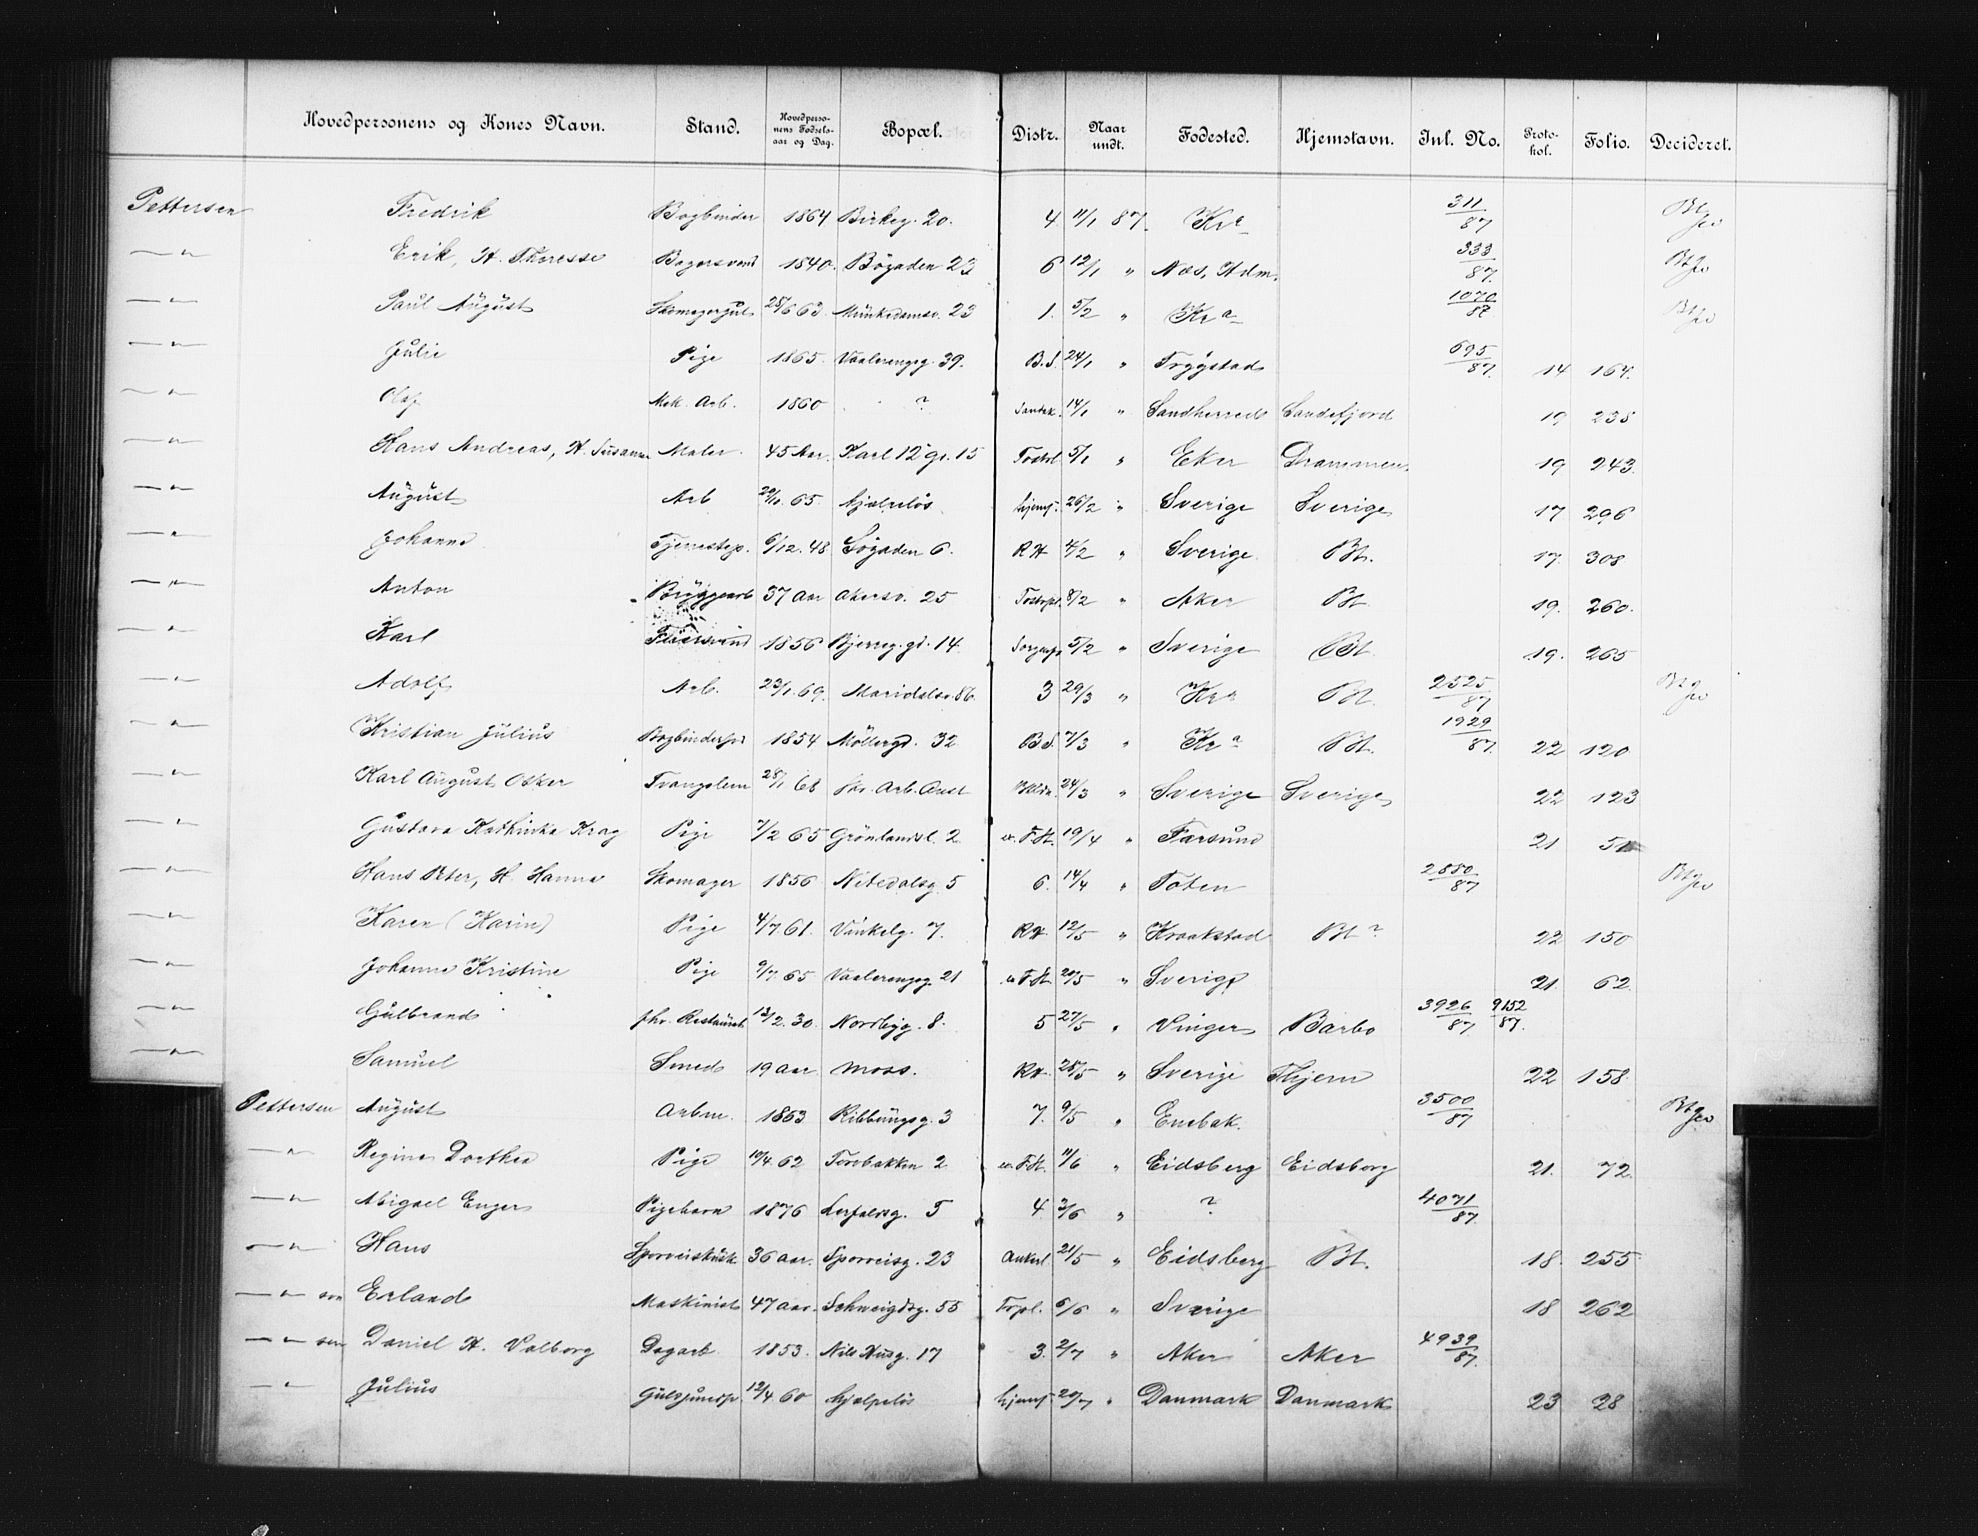 Hovedpersonens og Kones Navn. Stand. Hovedperso-nens Fødsels-aar og Dag. Bopæl. Distr. Naar undt. Fødested. Hjemstavn. Inl. No. Proto-kol. Folio. Decideret.
Pettersen Fredrik Bogbinder 1864 Birkeg. 20. 4 11/1 87. Kra 311/87 Bt
—"— Erik, H. Theresse 1840. Bøgaden 23 6 12/1 " Næs, Hdm. 333/87. Bt
—"— Paul August Skomagersv 28/6 63. Munkedamsv. 23 1. 5/2 " Kra 1070/87 Bt
—"— Julie Pige 1865. Vaalerengsg. 39. B.S. 24/1 " Trygstad 695/87. 14 164.
—"— Olaf Mek. Arb. 1860 ? 14/1 " Sandherred Sandefjord 19 238
—"— Hans Andreas, H. Susanne Maler 45 Aar. Karl 12 gr. 15 5/1 " Eker Drammen. 19 243.
—"— August Arb 65. hjælpeløs hjemf. 26/2 " Sverige Sverige 17 296
—"— Johanne Tjenestep. 6/12. 48 Søgaden 6. RH 4/2 " Sverige Bt. 17. 308
—"— Anton Bryggearb 37 Aar Akersv. 25 8/2 " Aker Bt 19. 260.
—"— Karl 1856 Bjerreg. gd. 14. 5/2 " Sverige Bt 19. 265
—"— Adolf Arb. 23/1. 69. Maridalsv. 86 3 29/3 " Kra Bt. 2525/87 Bt
—"— Kristian Julius 1854 Møllergd. 32 B.S. 7/3 " Kra Bt. 1929/87. 22 120
—"— Karl August Osker Tvangslem 28/1 68 fhv. Arb. Anst 24/3 " Sverige Sverige 22 123
—"— Gustava Kathinka Krag Pige 7/2 65 Grønlandsl. 2 19/4 " Farsund 21 51
—"— Hans Peter, H. Hanna Skomager 1856 Nitedalsg. 5 6. 14/4 " Toten 2880/87 Bt
—"— Karen (Karin) Pige 4/7 61. Vinkelg. 7. RH. 12/5 " Kraakstad Bt? 22 150
—"— Johanne Kristine Pige 65 Vaalerengsg. 21 20/5 " Sverige 21. 62.
—"— Gulbrand fhv. Restaurat 13/2. 30. Nordbyg. 8. 5 27/5 " Vinger Barbo 3926/87 9152/87.
—"— Samuel Smed 19 Aar Moss. RH. 28/5 " Sverige Thjem 22 158.
Pettersen August Arbm. 1863 Ribbungsg. 3 7. 9/5 " Enebak. 3500/87 Bt
—"— Regine Dorthea Pige 62 Torebakken 2 11/6 " Eidsberg Eidsberg 21. 72.
—"— Abigael Enger Pigebarn 1876 Lerfaldsg. 5 4 3/6 " ? 4071/87.
—"— Hans Sporveiskusk 36 Aar. Sporveisg. 23 Ankerl 21/5 " Eidsberg Bt. 18. 255
—"— søn Erland Maskinist 47 Aar. Schweigdsg. 55 6/6 " Sverige 18 262
—"— sen Daniel H. Valborg Dagarb 1853. Nils Husg. 17 3. 2/7 " Aker Aker 4939/87.
—"— Julius 12/4 60 hjælpeløs hjemf. 20/7 " Danmark Danmark 23 28